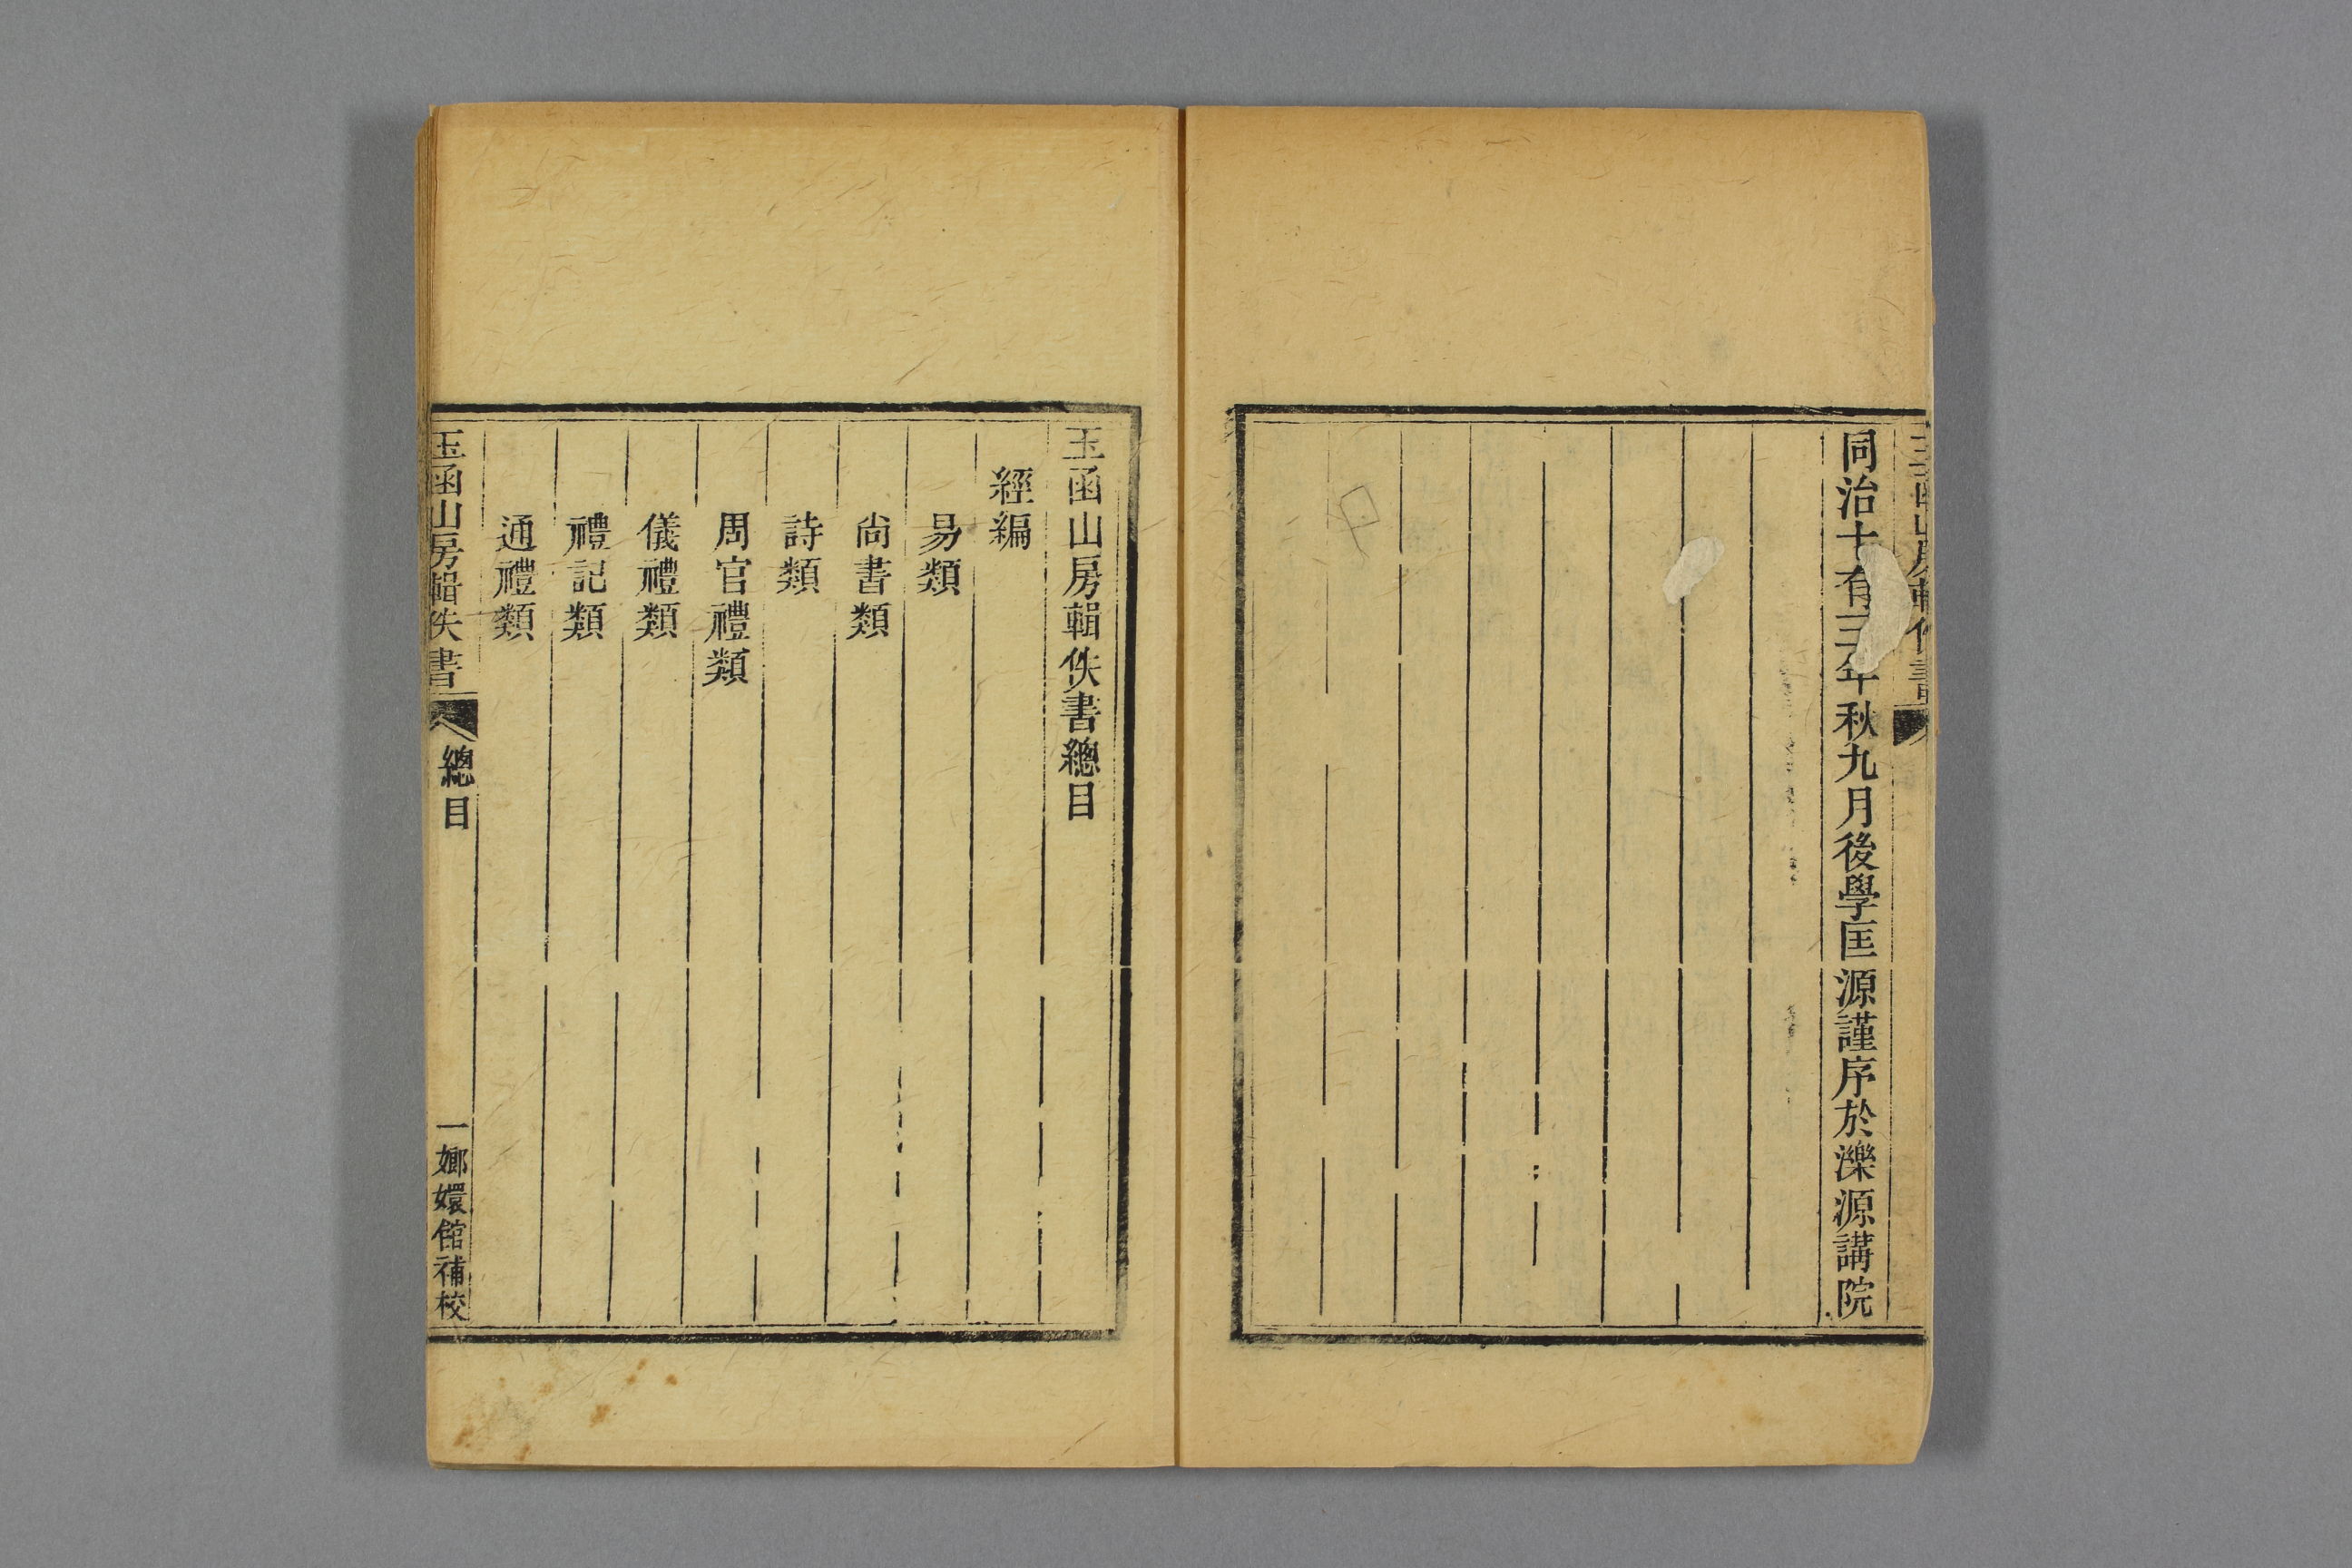 同治十有三年秋九月後學匡源謹序於濼源講院
玉函山房輯佚書總目
經編
易類
尚書類
詩類
周官禮類
儀禮類
禮記類
通禮類
玉函山房輯佚書
總目
一
嫏嬛館補校